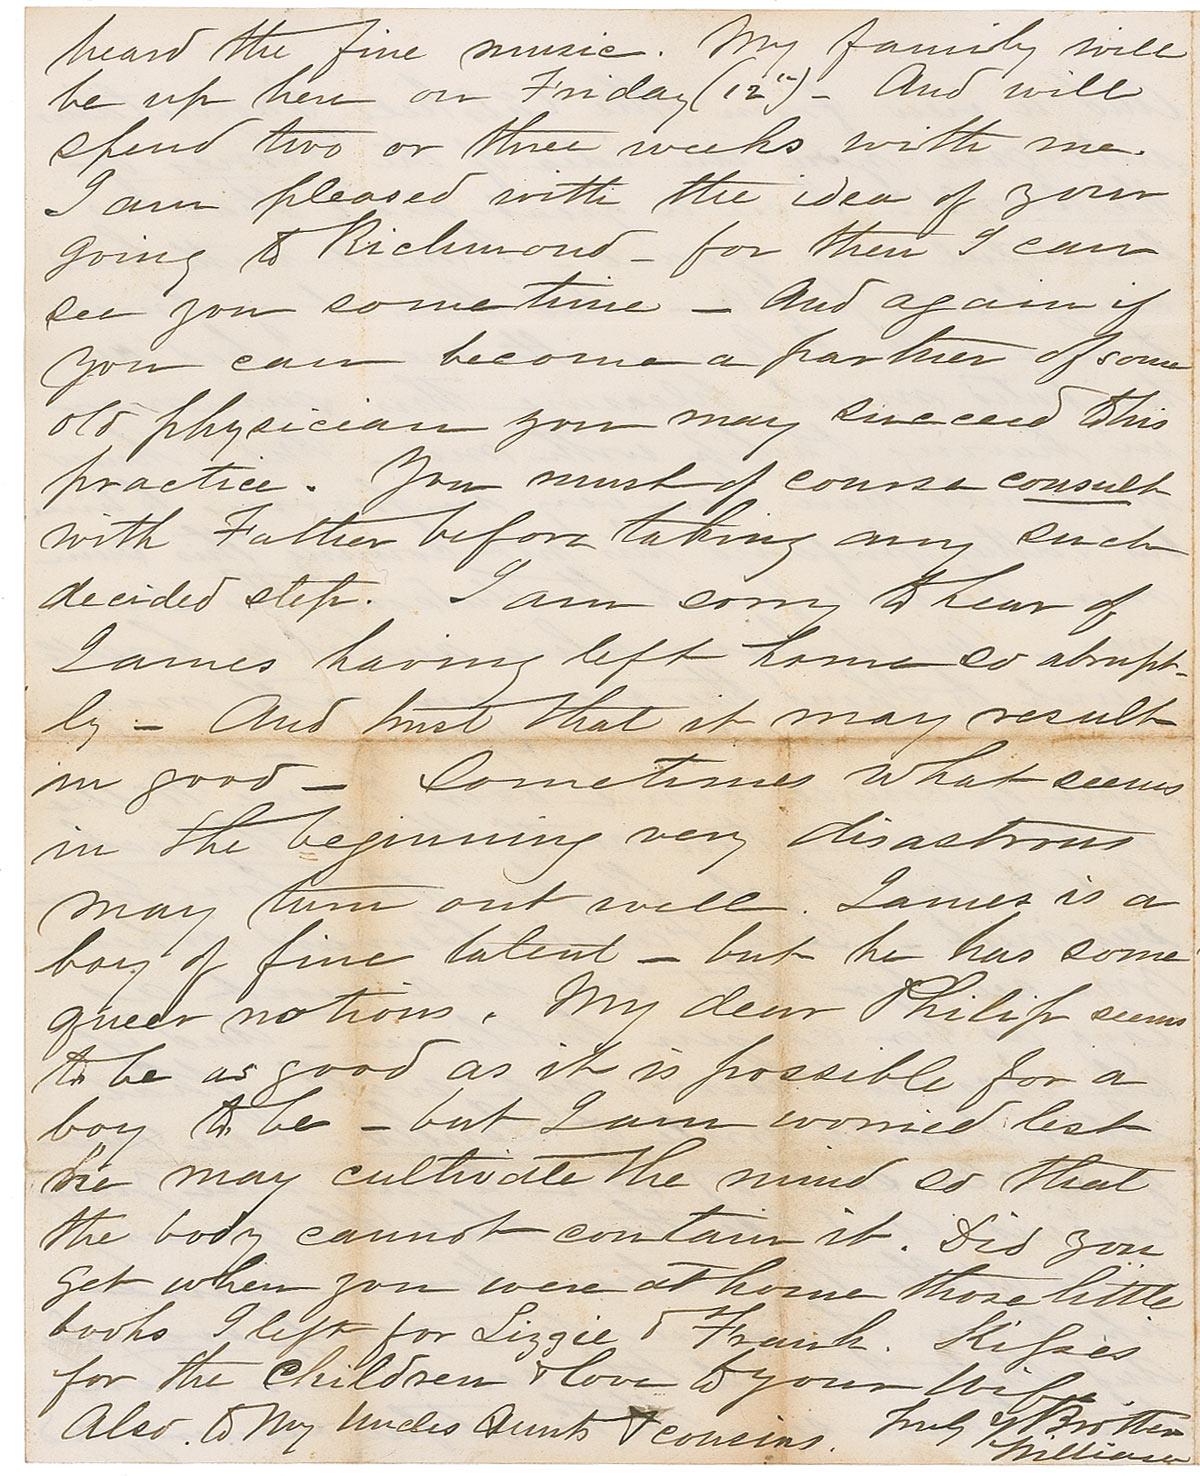 heard the fine music. My family will
be up here on Friday (12th) - And will
spend two or three weeks with me.
I am pleased with the idea of your
going to Richmond - for then I can
see you some time - And again if
you can become a partner of some
old physician you may succeed to his
practice. You must of course consult
with Father before taking any such
decided step. I am sorry to hear of
James having left home so abrupt-
ly - And trust that it may result
in good - Sometimes what seems
in the beginning very disastrous
may turn out well. James is a
boy of fine talent - but he has some
queer notions. My dear Philip seems
to be as good as it is possible for a
boy to be - but I am worried lest
he may cultivate the mind so that
the body cannot contain it. Did you
get when you were at home those little
books I left for Lizzie & Frank. Kisses
for the children & love to your wife
Also to my Uncles Aunts & cousins. Truly yr Brother
William